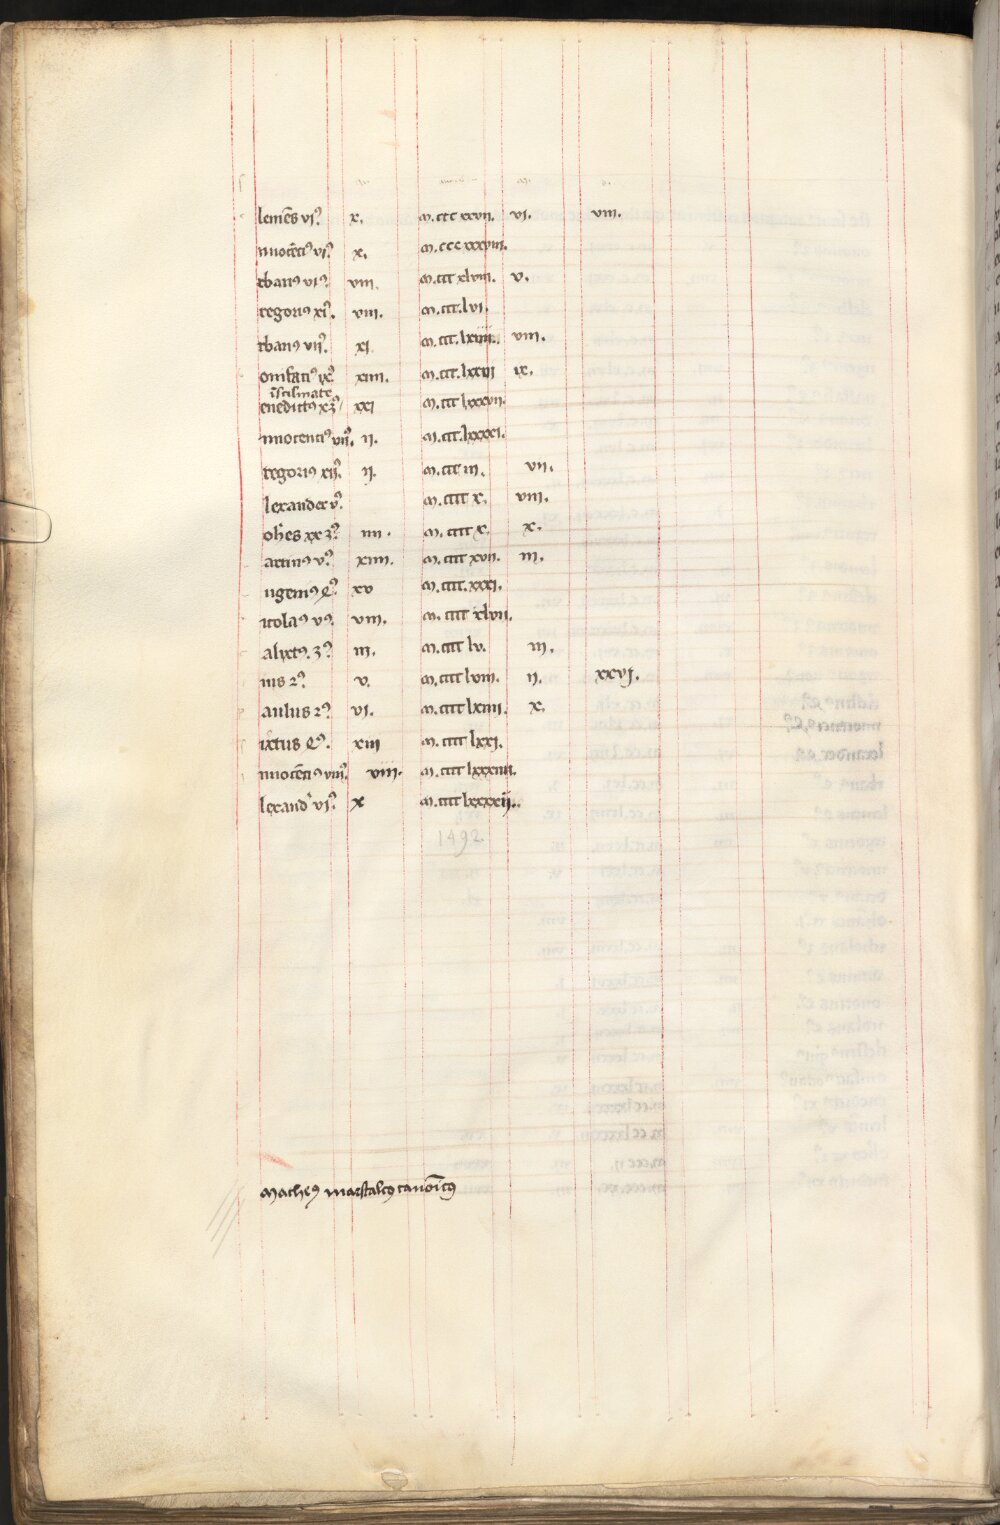 lemēs viꝰ. x. m.ccc xxvii. vi. viii.
nnocēciꝰ viꝰ. x. m.ccc xxxviii.
rbanꝰ viꝰ. viii. m.ccc xlviii. v.
regoriꝰ xiꝰ. viii. m.ccc.lvi.
rbanꝰ viiꝰ. xi m.ccc.lxiiii. viii.
onifatiꝰ ixꝰ. xiiii. m.ccc.lxxvi ix.
ī scismate
enedictꝰ xiii xxi m.ccc lxxxvii.
nnocenciꝰ viiꝰ. ii. m.ccc.lxxxxi.
regoriꝰ xiiꝰ. ii. m.cccc iii. vii.
lexander vꝰ. m.cccc x. viii.
ohēs xx 3ꝰ. iiii. m.cccc x. x.
artinꝰ vꝰ. xiiii. m.cccc xvii. iii.
ugeniꝰ 4ꝰ. xv m.cccc.xxxi.
icolaꝰ vꝰ. viii. m.cccc xlvii.
alixtꝰ. 3ꝰ. iii. m.cccc lv. iii.
ius 2ꝰ. v. m.cccc lviii. ii. xxvj.
aulus 2ꝰ. vi. m.cccc lxiiii. x.
ixtus 4ꝰ. xiii m.cccc lxxi.
nnocēciꝰ viiiꝰ. viii. m.cccc lxxxiiii.
lexand' viꝰ. x m.cccc lxxxxii.
1492
Macheꝰ marstalcꝰ canōicꝰ